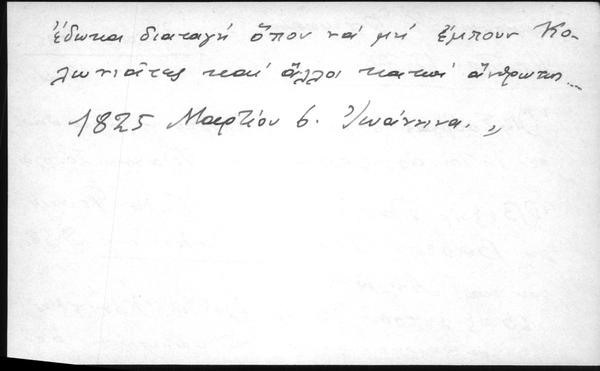 ἔδωκα διαταγή ὅπου νά μή ἔμπουν Κο-
λωνιᾶτες καί ἄλλοι κακοί ἄνθρωποι...
1825 Μαρτίου 6. Ἰωάννινα. "